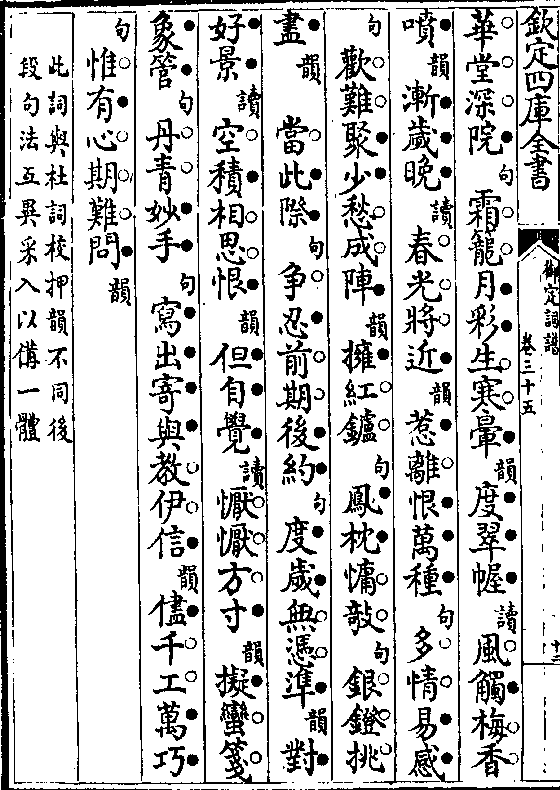 欽定四庫全書 御定詞譜 卷三十五 十二
華堂深院句霜籠月彩生寒暈韻度翠幄讀風觸梅香
噴韻漸歲晚讀春光將近韻惹離恨萬種句多情易感
句歡難聚少愁成陣韻擁紅鑪句鳳枕慵敧句銀鐙挑
盡韻當此際句争忍前期後約句度歲無憑準韻對
好景讀空積相思恨韻但自覺讀懨懨方寸韻擬蠻箋
象管句丹青妙手句寫出寄與教伊信韻儘千工萬巧
句惟有心期難問韻
此詞與杜詞校押韻不同後
段句法互異采入以備一體